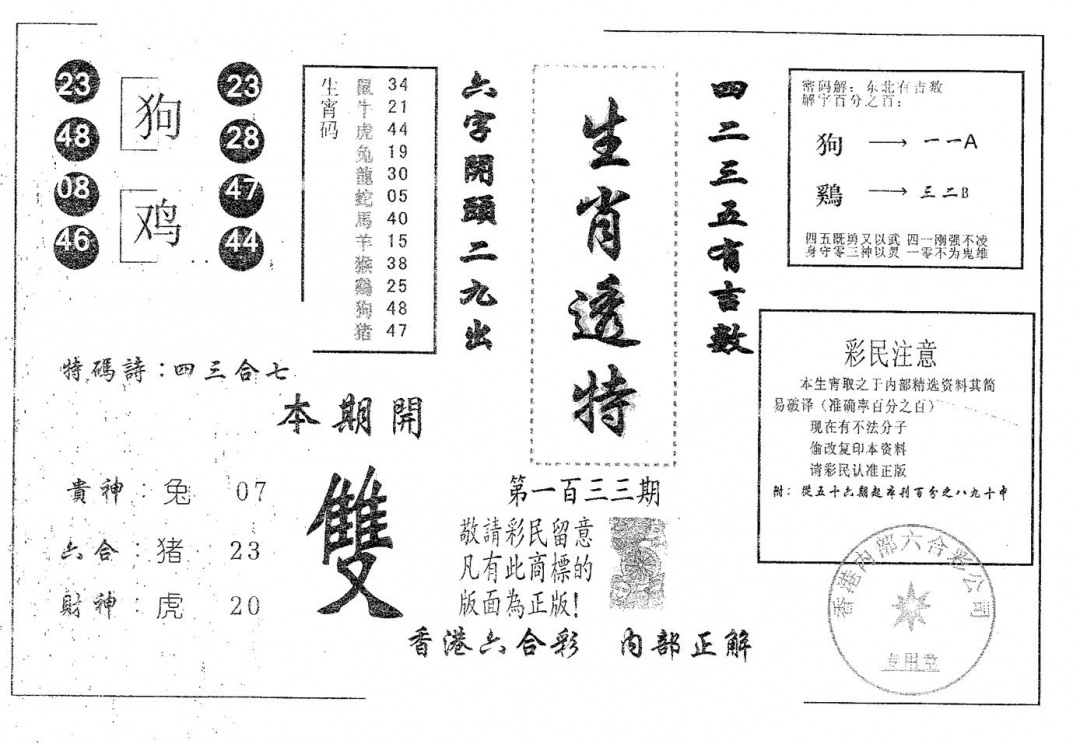 23
48
08
46
狗
鸡
23
28
47
44
生宵码
鼠 34
牛 21
虎 44
兔 19
龍 30
蛇 05
馬 40
羊 15
猴 38
鷄 25
狗 48
猪 47
六字開頭二九出
生肖透特
四二三五有吉数
密码解：东北有吉数
解字百分之百：
狗 → 一一A
鷄 → 三二B
四五既勇又以武 四一刚强不凌
身守零三神以灵 一零不为鬼雄
彩民注意
本生宵取之于内部精选资料其简
易破译（准确率百分之百）
现在有不法分子
偷改复印本资料
请彩民认准正版
附：從五十六期起准利百分之八九十中
特碼詩：四三合七
本期開
雙
貴神：兔 07
六合：猪 23
財神：虎 20
第一百三三期
敬請彩民留意
凡有此商標的
版面為正版！
香港六合彩 内部正解
香港内部六合彩公司
专用章